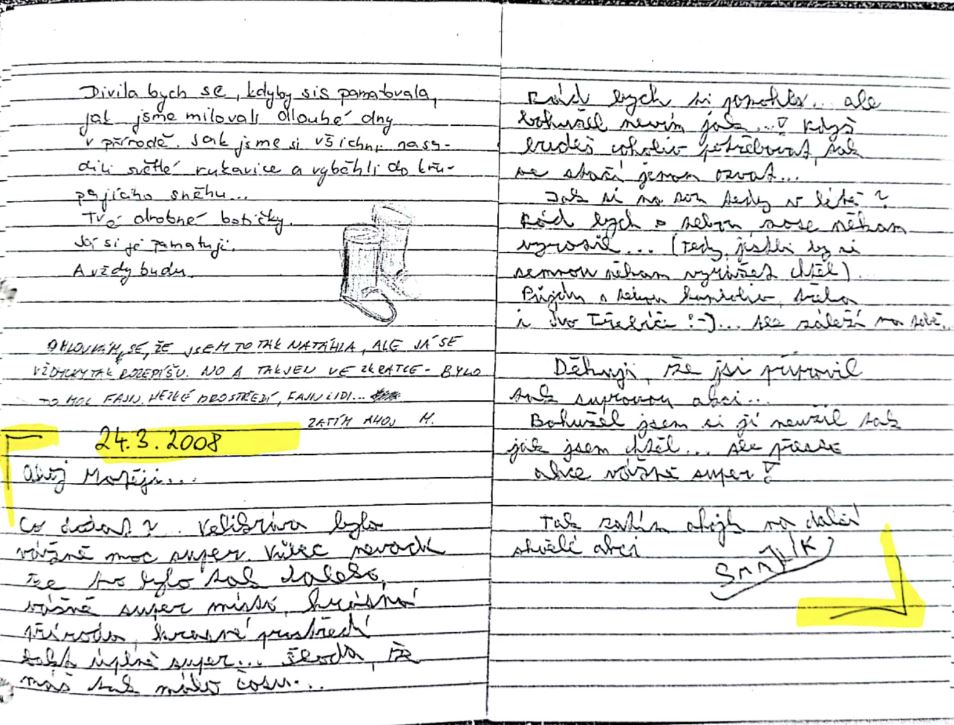 Divila bych se, kdyby sis pamatovala,
jak jsme milovali dlouhé dny
v přírodě. Jak jsme si všichni nasa-
dili světlé rukavice a vyběhli do křu-
pajícího sněhu...
Tvé drobné botičky.
Já si je pamatuji.
A vždy budu.
OMLOUVÁM SE, ŽE JSEM TO TAK NATÁHLA, ALE JÁ SE
VŽDYCKY TAK ROZEPÍŠU. NO A TAK JEN VE ZKRATCE - BYLO
TO MOC FAJN, HEZKÉ PROSTŘEDÍ, FAJN LIDI...
ZATÍM AHOJ M.
24.3.2008
Ahoj Matěji...
Co dodat? byla
vážně moc super. Vůbec nevadí
že to bylo tak daleko,
vážně super místo, krásná
příroda, krasné prostředí
úplně super... škoda, že
máš tak málo času...
Rád bych ti pomohl... ale
bohužel nevím jak...! Když
budeš cokoliv potřebovat, tak
se stačí jenom ozvat...
Jak si na tom tedy v létě?
Rád bych s tebou zase někam
vyrazil... (tedy jestli by si
semnou někam vyrážet chtěl)
Pojedu s tebou kamkoliv, třeba
i do Třebíče :-)... ale záleží na tobě.
Děkuji, že jsi připravil
tak suprovou akci...
Bohužel jsem si jí neužil tak
jak jsem chtěl... ale přesto
akce vážně super!
Tak zatím ahojk na další
skvělé akci